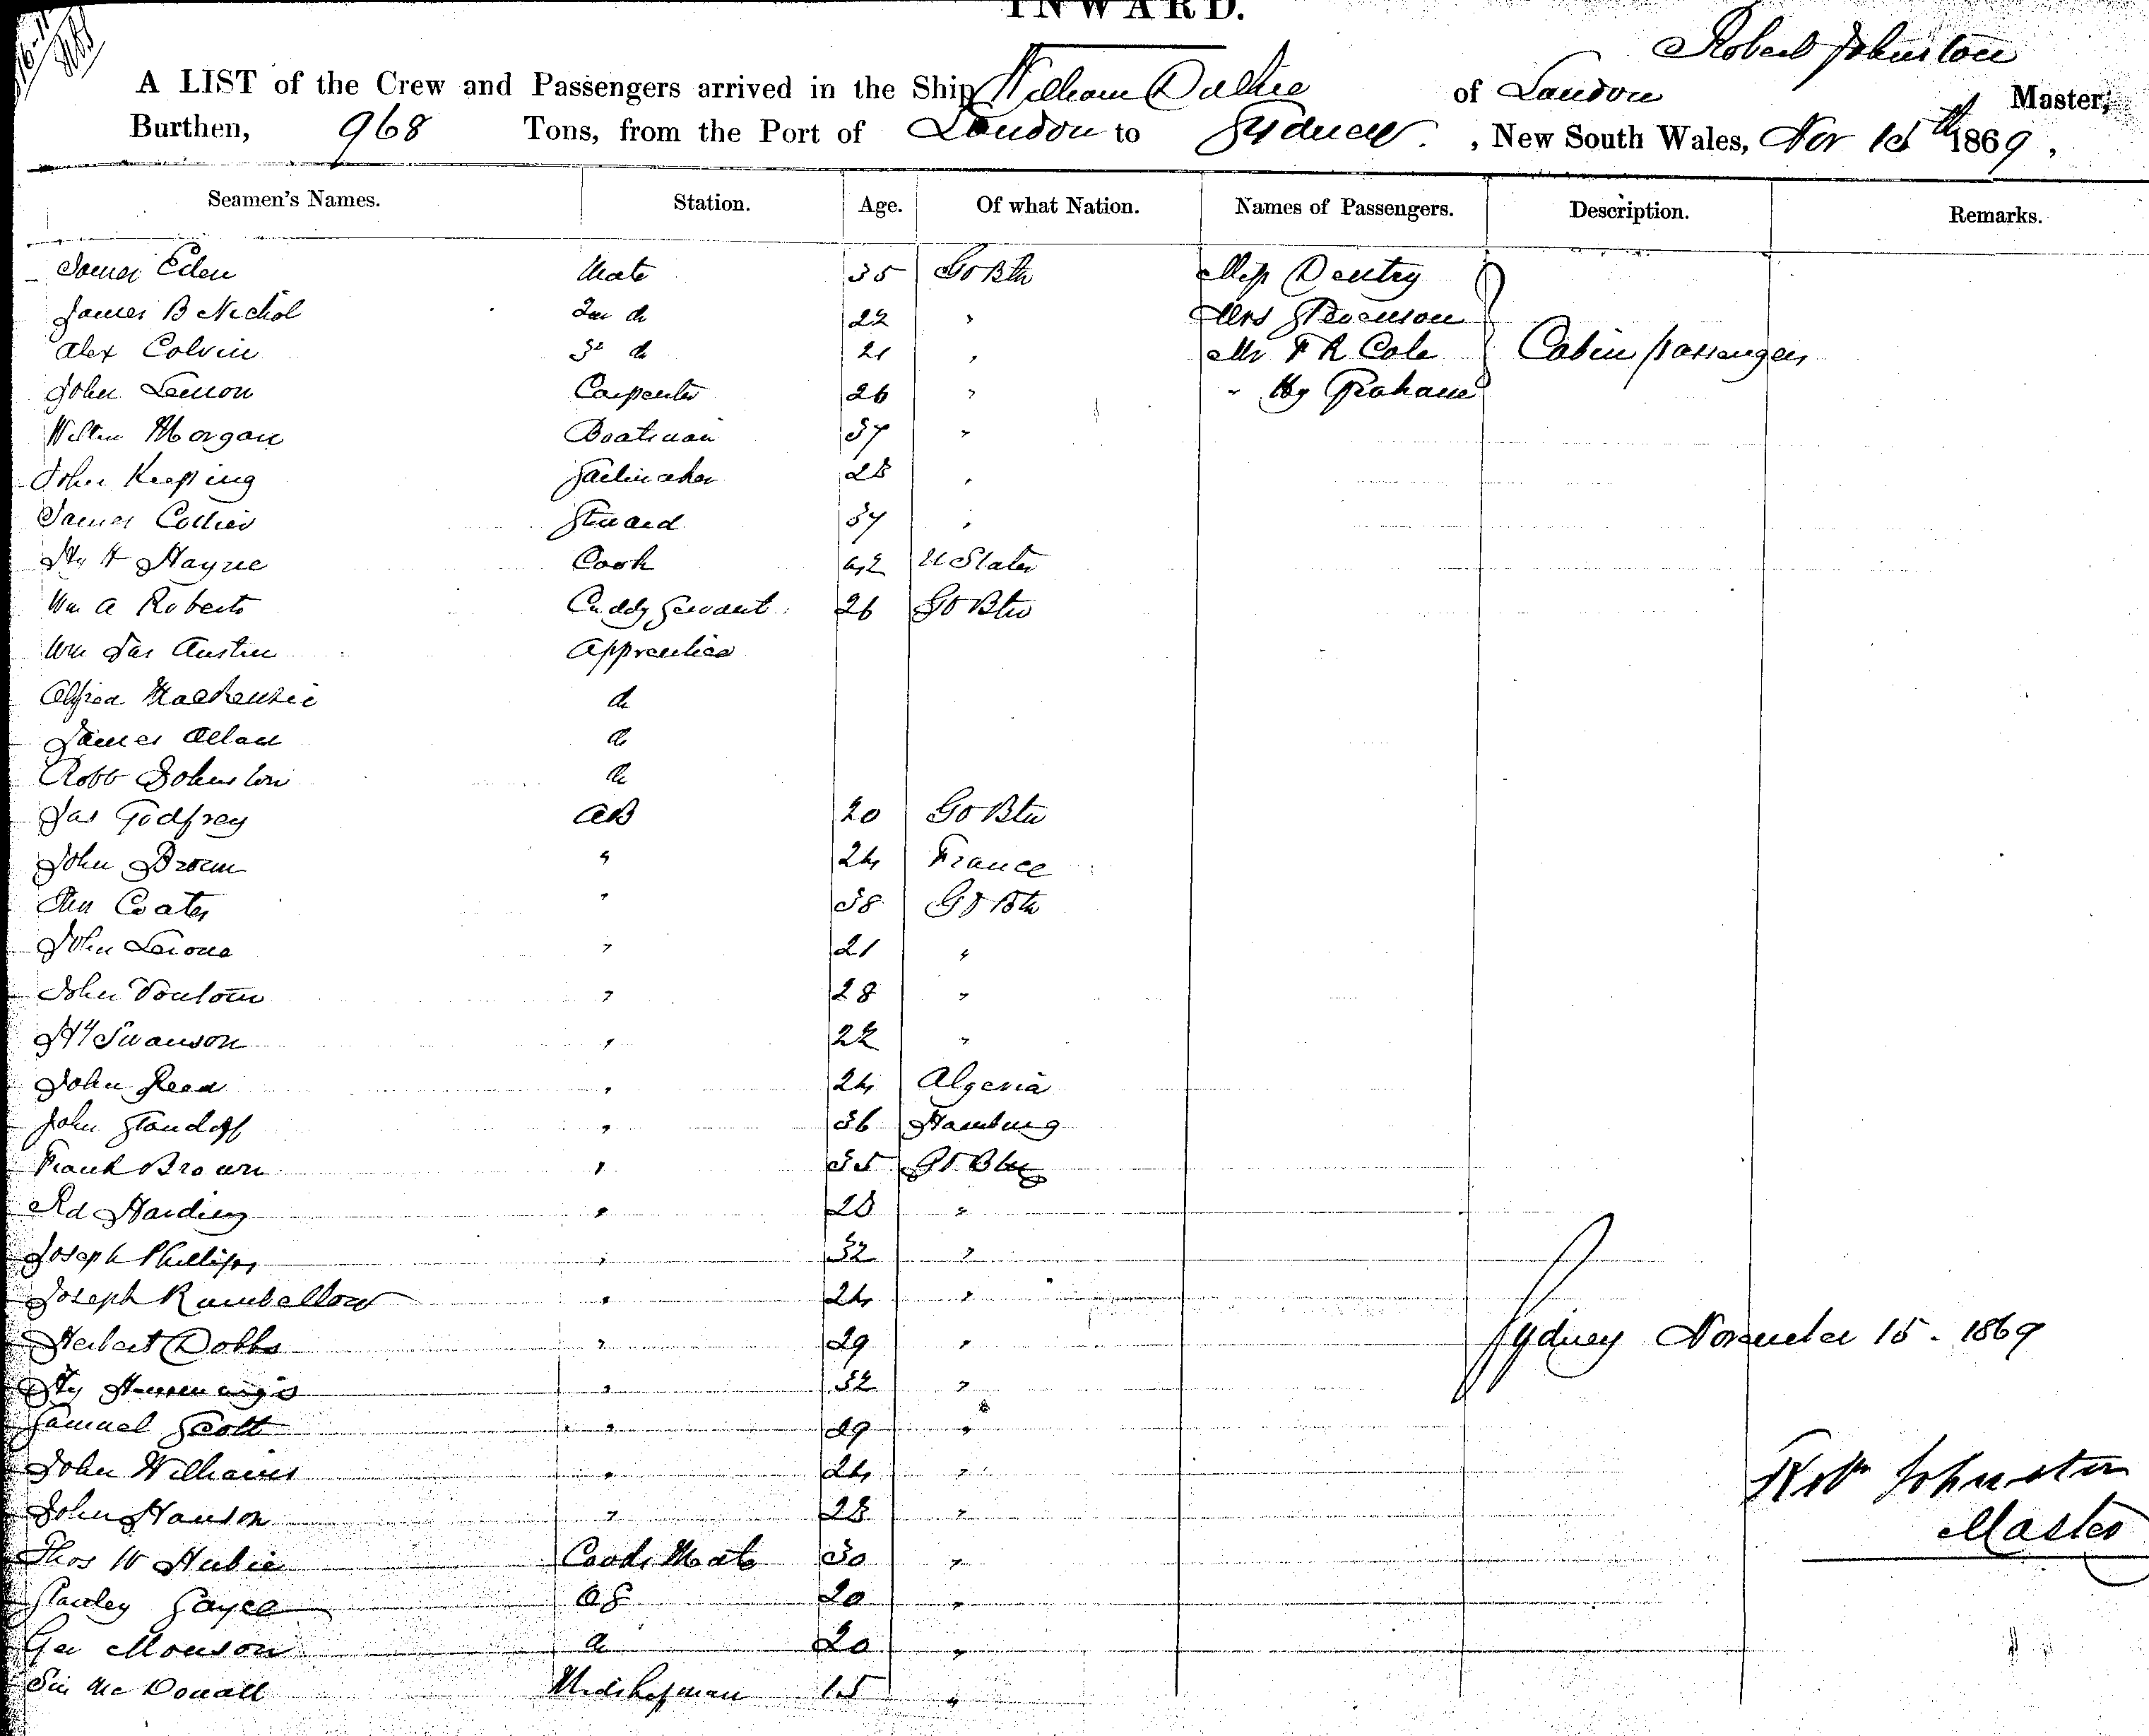 INWARD.
Robert Johnston
A LIST of the Crew and Passengers arrived in the Ship William Duthie of London Master,
Burthen, 968 Tons, from the Port of London to Sydney , New South Wales, Nov 15th 1869,
Seamen's Names. Station. Age. Of what Nation. Names of Passengers. Description. Remarks.
James Eden Mate 35 Gt Btn Miss Dentry
James B Nichol 2nd do 22 " Mrs Stevenson
Alex Colvin 3d do 21 " Mr F R Cole Cabin passengers
John Lemon Carpenter 26 " " Hy Graham
Willm Morgan Boatsman 37 "
John Keeping Sailmaker 28 "
James Collier Steward 37 "
Hy H Hayne Cook 42 U States
Wm A Roberts Cuddy Servant 26 Gt Btn
Wm Jas Austin Apprentice
Alfred Mackenzie do
James Allan do
Robt Johnston do
Jas Godfrey AB 20 Gt Btn
John Brown " 24 France
Coates " 38 Gt Btn
John " 21 "
John " 28 "
Hy Swanson " 22 "
John Reed " 24 Algeria
John " 36 Hamburg
Frank Brown " 35 Gt Btn
Rd Harding " 28 "
Joseph Phillips " 32 "
Joseph Rumbellow " 24 "
Herbert Dobbs " 29 " Sydney November 15 - 1869
Hy Hemmings " 32 "
Samuel Scott " 29 "
John Williams " 24 "
Robt Johnston
John Hanson " 28 "
Master
Thos W 30 "
Stanley Sayce OS 20 "
Geo Monson do 20 "
Mc Donall Midshipman 15 "